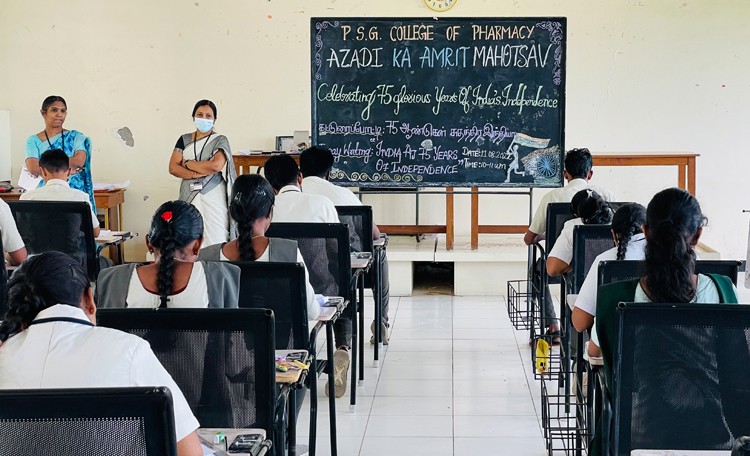 P.S.G. COLLEGE OF PHARMACY
AZADI KA AMRIT MAHOTSAV
Celebrating 75 glorious Years Of India's Independence
கட்டுரைப்போட்டி 75 ஆண்டுகள் சுதந்திர இந்தியா
Essay Writing: INDIA AT 75 YEARS
OF INDEPENDENCE"
DATE: 11.08.2022
TIME: 10-11 am